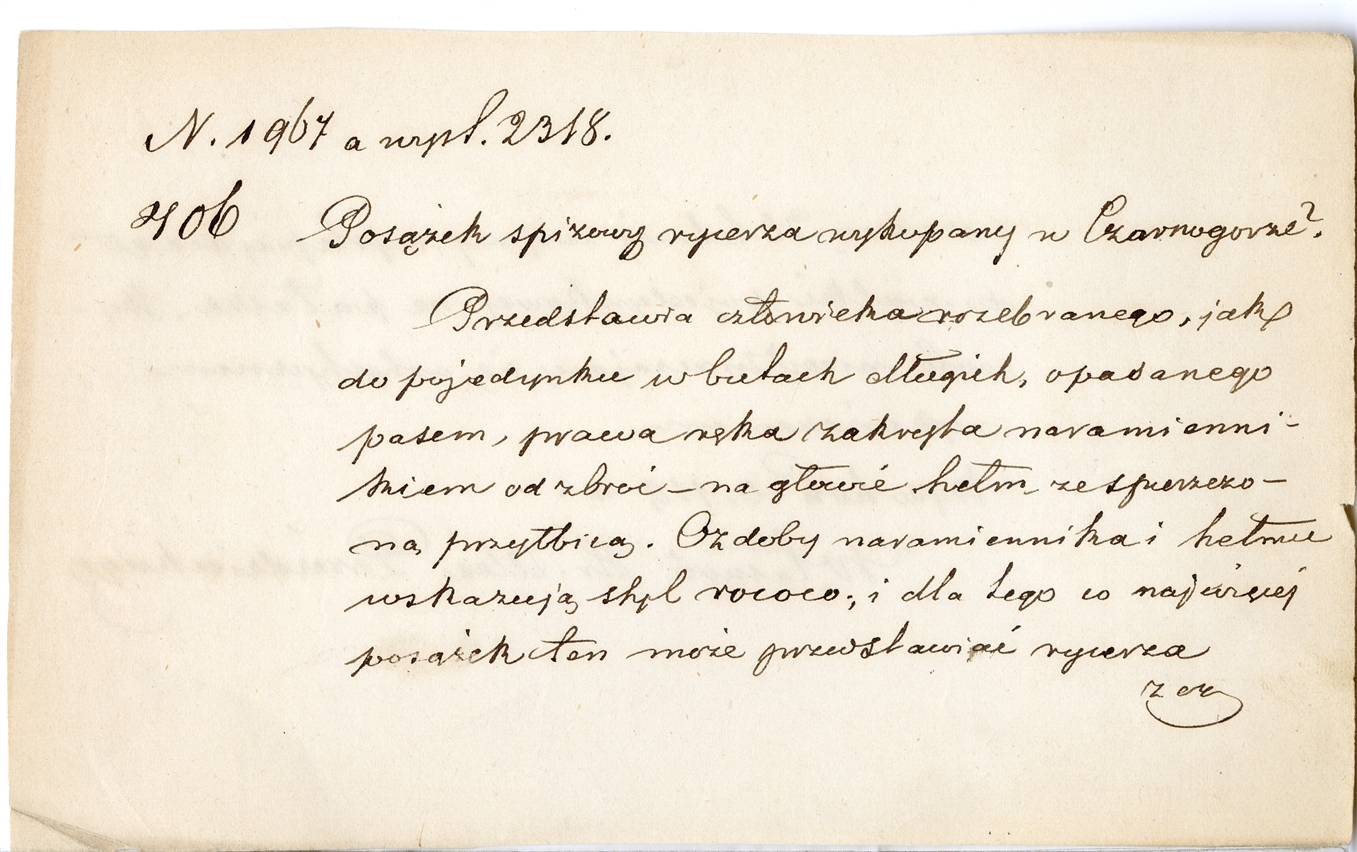 N. 1967 a wpł. 2318.
706 Posążek spiżowy rycerza wykopany w Czarnogorze?.
Przedstawia człowieka rozebranego, jak
do pojedynku w butach długich, opasanego
pasem, prawa ręka zakryta naramienni-
kiem od zbroi – na głowie hełm ze spierzczo-
ną przyłbicą. Ozdoby naramiennika i hełmu
wskazują styl rococo; i dla tego co najwięcej
posążek ten może przedstawiać rycerza
z cz